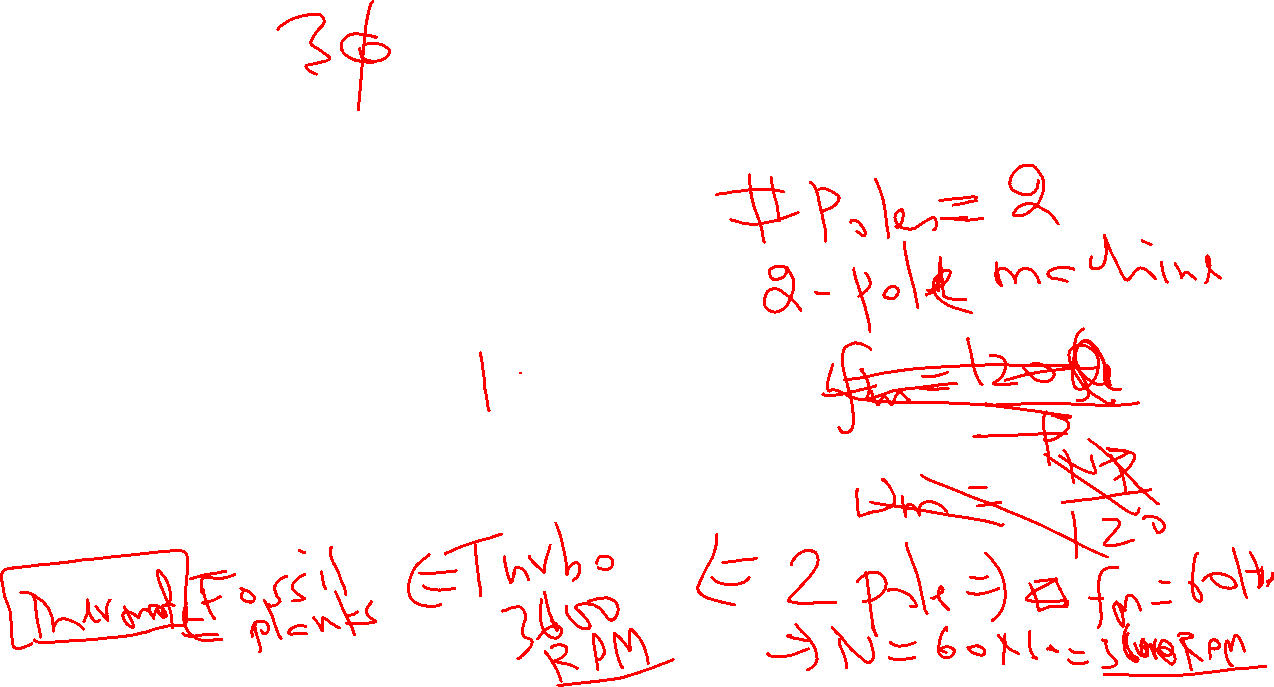 3φ
# Poles = 2
2-pole machine
fm = 120
P
ωm = NP
120
Thermal Fossil plants ⇐ Turbo 3600 RPM ⇐ 2 pole ⇒ fm = 60Hz
→ N = 60x60 = 3600 RPM